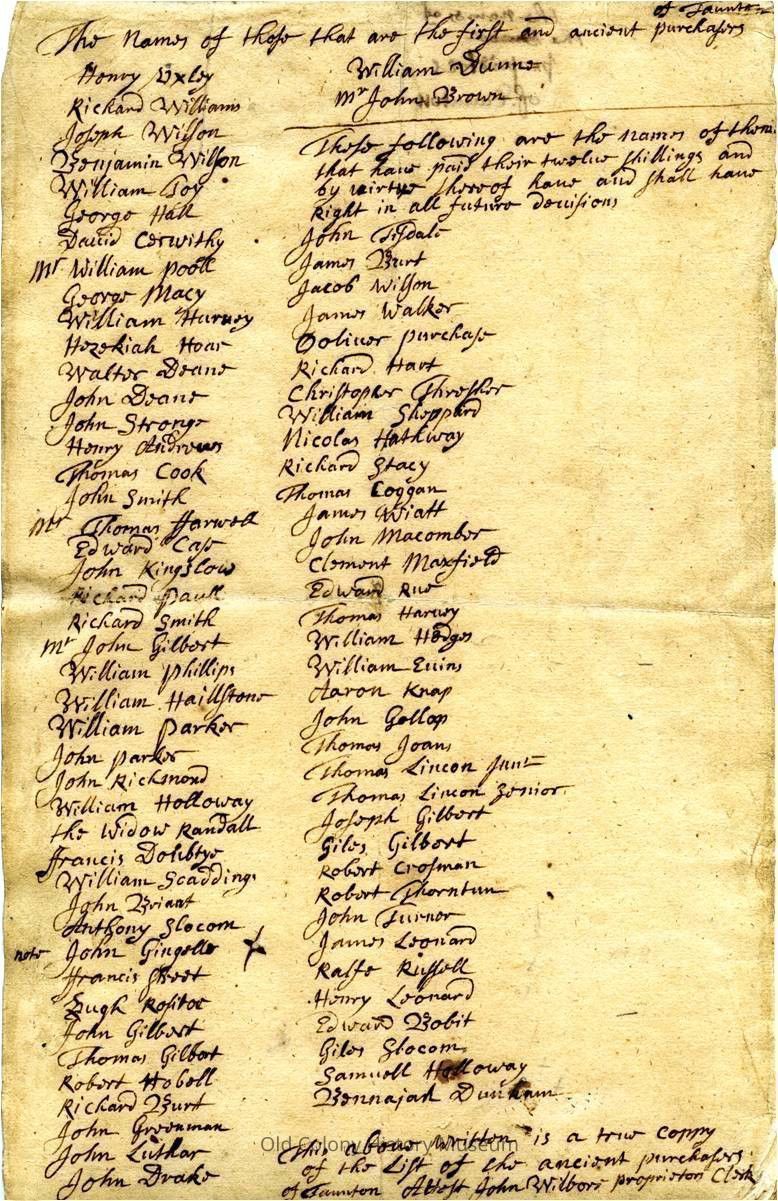 of Taunton
The Names of those that are the first and ancient purchasers
Henry Uxley
Richard Williams
Joseph Willson
Benjamin Wilson
William Coy
George Hall
Dauid Cerwithy
Mr William pooll
George Macy
William Haruey
Hezekiah Hoar
Walter Deane
John Deane
John Stronge
Henry Andrews
Thomas Cook
John Smith
Mr Thomas Farwell
Edward Case
John Kingslow
Richard paull
Richard Smith
Mr John Gilbert
William phillips
William Haillstone
William parker
John parker
John Richmond
William Holloway
the Widow Randall
ffrancis Doubtye
William Scaddings
John Briant
Anthony Slocom
note John Gingello
ffrancis Street
Hugh Rositor
John Gilbert
Thomas Gilbort
Robert Hobell
Richard Burt
John Greenman
John Luthar
John Drake
William Dunne
Mr John Brown
These following are the names of them
that have paid their twelue shillings and
by virtue thereof haue and shall haue
Right in all future deuisions
John Tisdale
James Burt
Jacob Wilson
James Walker
Ooliuer purchase
Richard Hart
Christopher Thresher
William Sheppard
Nicolas Hathway
Richard Stacy
Thomas Coggan
James Wiatt
John Macomber
Clement Maxfield
Edward Rue
Thomas Haruey
William Hodges
William Euins
Aaron Knap
John Gollop
Thomas Joans
Thomas Lincon Junr
Thomas Lincon Senior
Joseph Gilbert
Giles Gilbert
Robert Crosman
Robert Thorntun
John Turner
James Leonard
Ralfe Russell
Henry Leonard
Edward Bobit
Giles Slocom
Samuell Holloway
Bennajah Dunham
This aboue written is a true coppy
of the List of the ancient purchasers
of Taunton Attest John Wilbore proprietors Clerk
Old Colony History Museum